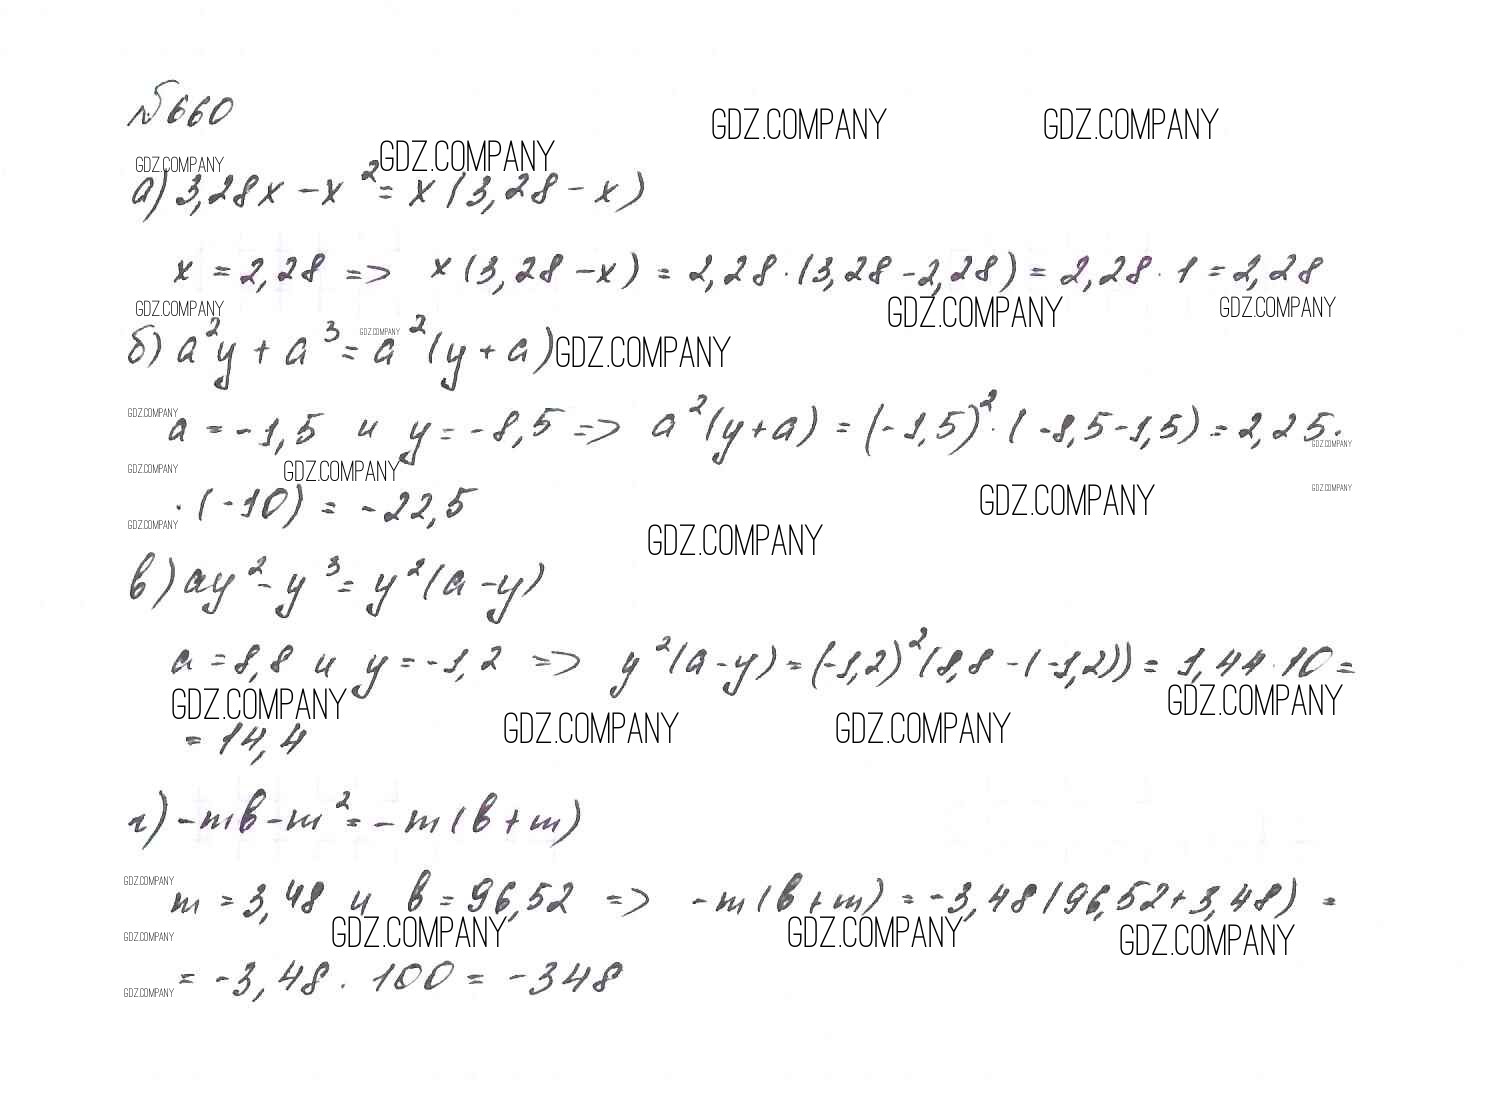 №660
GDZ.COMPANY GDZ.COMPANY
GDZ.COMPANY GDZ.COMPANY
а) 3,28x - x² = x(3,28 - x)
x = 2,28 => x(3,28 - x) = 2,28 · (3,28 - 2,28) = 2,28 · 1 = 2,28
GDZ.COMPANY GDZ.COMPANY GDZ.COMPANY
б) a²y + a³ = a²(y + a)
GDZ.COMPANY GDZ.COMPANY
a = -1,5 и y = -8,5 => a²(y + a) = (-1,5)² · (-8,5 - 1,5) = 2,25 ·
GDZ.COMPANY GDZ.COMPANY
GDZ.COMPANY GDZ.COMPANY
· (-10) = -22,5
GDZ.COMPANY GDZ.COMPANY
GDZ.COMPANY GDZ.COMPANY
в) ay² - y³ = y²(a - y)
a = 8,8 и y = -1,2 => y²(a - y) = (-1,2)²(8,8 - (-1,2)) = 1,44 · 10 =
GDZ.COMPANY GDZ.COMPANY GDZ.COMPANY GDZ.COMPANY
= 14,4
г) -mb - m² = -m(b + m)
GDZ.COMPANY
m = 3,48 и b = 96,52 => -m(b + m) = -3,48(96,52 + 3,48) =
GDZ.COMPANY GDZ.COMPANY GDZ.COMPANY GDZ.COMPANY
= -3,48 · 100 = -348
GDZ.COMPANY